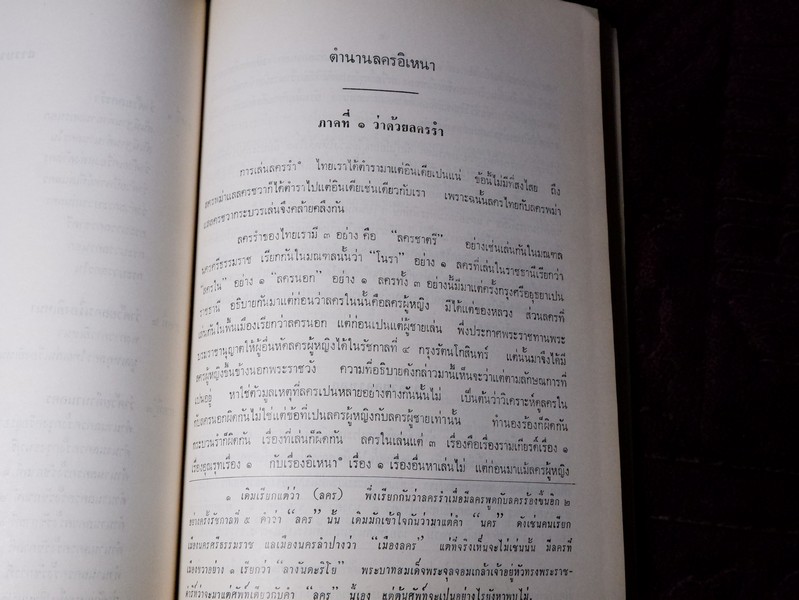 ตำนานลครอิเหนา
ภาคที่ ๑ ว่าด้วยลครรำ
การเล่นลครรำ๑ ไทยเราได้ตำรามาแต่อินเดียเปนแน่ ข้อนี้ไม่มีที่สงไสย ถึง
ลครพม่าแลลครชวาก็ได้ตำราไปแต่อินเดียเช่นเดียวกับเรา เพราะฉนั้นลครไทยกับลครพม่า
แลลครชวากระบวรเล่นจึงคล้ายคลึงกัน
ลครรำของไทยเรามี ๓ อย่าง คือ “ลครชาตรี” อย่างเช่นเล่นกันในมณฑล
นครศรีธรรมราช เรียกกันในมณฑลนั้นว่า “โนรา” อย่าง ๑ ลครที่เล่นในราชธานีเรียกว่า
“ลครใน” อย่าง ๑ “ลครนอก” อย่าง ๑ ลครทั้ง ๓ อย่างนี้มีมาแต่ครั้งกรุงศรีอยุธยาเปน
ราชธานี อธิบายกันมาแต่ก่อนว่าลครในนั้นคือลครผู้หญิง มีได้แต่ของหลวง ส่วนลครที่
เล่นกันในพื้นเมืองเรียกว่าลครนอก แต่ก่อนเปนแต่ผู้ชายเล่น พึ่งประกาศพระราชทานพระ
บรมราชานุญาตให้ผู้อื่นหัดลครผู้หญิงได้ในรัชกาลที่ ๔ กรุงรัตนโกสินทร์ แต่นั้นมาจึงได้มี
ลครผู้หญิงขึ้นข้างนอกพระราชวัง ความที่อธิบายดังกล่าวมานี้เห็นจะว่าแต่ตามลักษณการที่
เปนอยู่ หาใช่ตัวมูลเหตุที่ลครเปนหลายอย่างต่างกันนั้นไม่ เปนต้นว่าวิเคราะห์ดูลครใน
กับลครนอกผิดกันไม่ใช่แต่ข้อที่เปนลครผู้หญิงกับลครผู้ชายเท่านั้น ทำนองร้องก็ผิดกัน
กระบวนรำก็ผิดกัน เรื่องที่เล่นก็ผิดกัน ลครในเล่นแต่ ๓ เรื่องคือเรื่องรามเกียรติ์เรื่อง ๑
เรื่องอุณรุทเรื่อง ๑ กับเรื่องอิเหนา เรื่อง ๑ เรื่องอื่นหาเล่นไม่ แต่ก่อนมาแม้ลครผู้หญิง
๑ เดิมเรียกแต่ว่า (ลคร) พึ่งเรียกกันว่าลครรำเมื่อมีลครพูดกับลครร้องขึ้นอีก ๒
อย่างครั้งรัชกาลที่ ๕ คำว่า “ลคร” นั้น เดิมมักเข้าใจกันว่ามาแต่คำ “นคร” ดังเช่นคนเรียก
เมืองนครศรีธรรมราช แลเมืองนครลำปางว่า “เมืองลคร” แต่ที่จริงเห็นจะไม่เช่นนั้น มีลครที่
เมืองชวาอย่าง ๑ เรียกว่า “ลางันดะริโย” พระบาทสมเด็จพระจุลจอมเกล้าเจ้าอยู่หัวทรงพระราช-
ดำริห์ว่าจะมาแต่ศัพท์เดียวกับคำ “ลคร” นี้เอง แต่ต้นศัพท์จะเปนอย่างไรยังหาพบไม่.